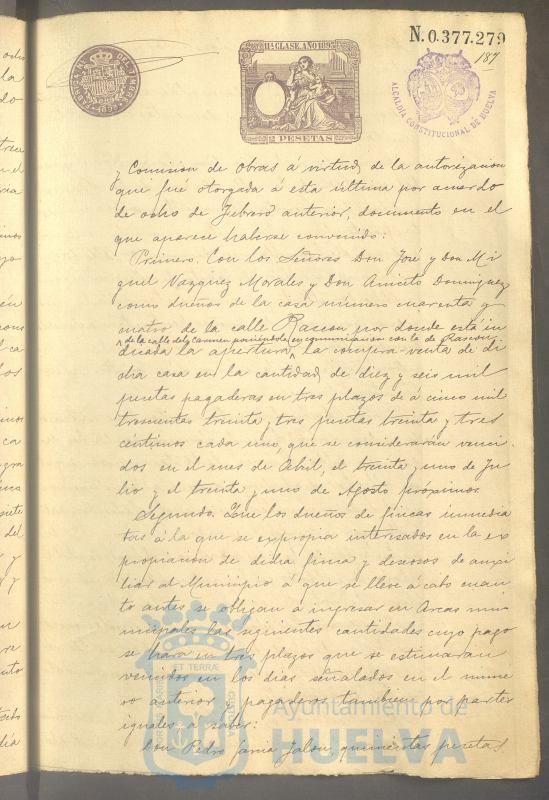 N.0.377.279
187
11ª CLASE. AÑO 1895
2 PESETAS
ALCALDÍA CONSTITUCIONAL DE HUELVA
y Comisión de Obras á virtud de la autorización
que fué otorgada á esta última por acuerdo
de ocho de Febrero anterior, documento en el
que aparece haberse convenido:
Primero. Con los Señores Don José y Don Mi
guel Vazquez Morales y Don Aniceto Dominguez
como dueños de la casa número cuarenta y
cuatro de la calle Rascon por donde está in
^ de la calle del Carmen poniéndola en comunicacion con la de Rascon
dicada la apertura ^ la compra-venta de di
cha casa en la cantidad de diez y seis mil
pesetas pagaderas en tres plazos de á cinco mil
trescientas treinta y tres pesetas treinta y tres
centimos cada uno, que se considerarán venci-
dos en el mes de Abril, el treinta y uno de Ju
lio y el treinta y uno de Agosto próximos.
Segundo. Que los dueños de fincas inmedia
tas á la que se expropia interesados en la ex
propiacion de dicha finca y deseosos de auxi
liar al Municipio á que se lleve á cabo cuan
to antes se obligan a ingresar en Arcas mu-
nicipales las siguientes cantidades cuyo pago
se hará en tres plazos que se estimarán
vencidos en los dias señalados en el núme
ro anterior y pagaderos tambien por partes
iguales á saber:
Don Pedro Jalon, quinientas pesetas
Ayuntamiento de
HUELVA